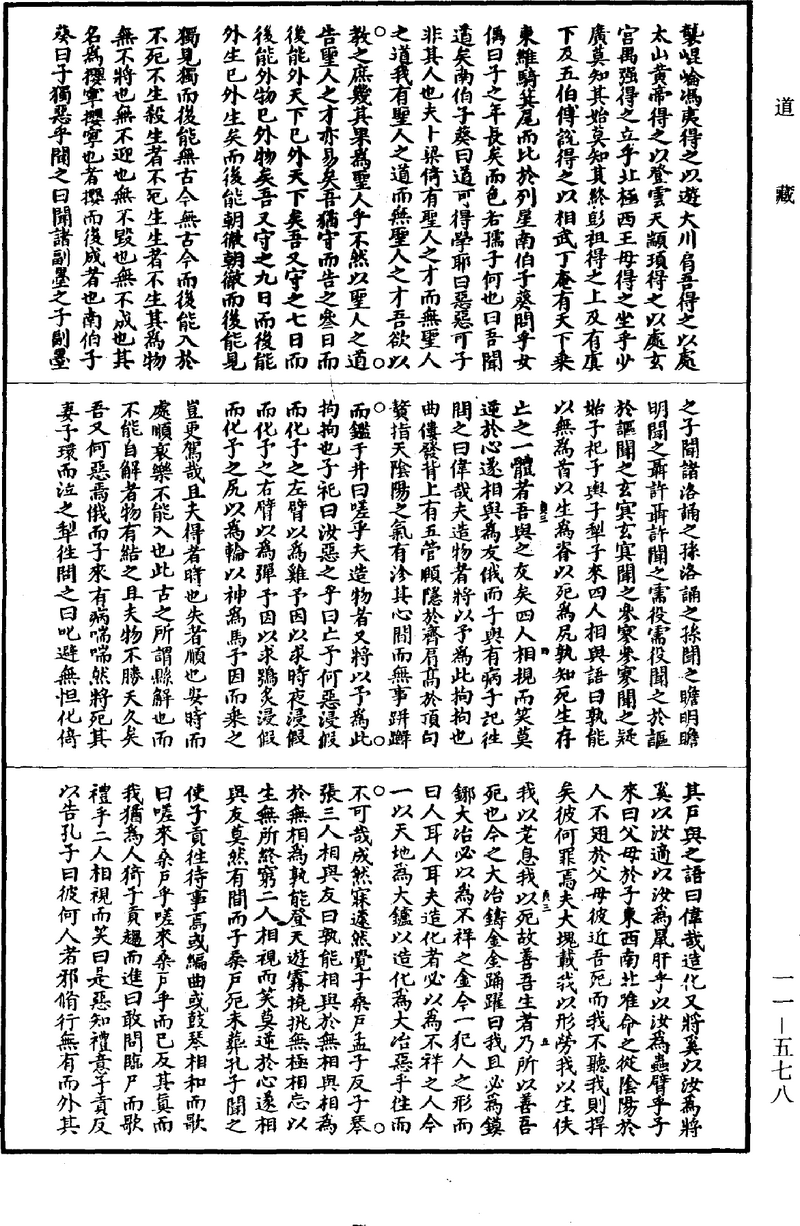 道藏
襲崐崘馮夷得之以遊大川肩吾得之以處
太山黄帝得之以登雲天顓頊得之以處玄
宮禺强得之立乎北極西王母得之坐乎少
廣莫知其始莫知其終彭祖得之上及有虞
下及五伯傅說得之以相武丁奄有天下乘
東維騎箕尾而比於列星南伯子葵問乎女
偊曰子之年長矣而色若孺子何也曰吾聞
道矣南伯子葵曰道可得學耶曰惡惡可子
非其人也夫卜梁倚有聖人之才而無聖人
之道我有聖人之道而無聖人之才吾欲以
教之庶幾其果為聖人乎不然以聖人之道
告聖人之才亦易矣吾猶守而告之叄日而
後能外天下已外天下矣吾又守之七日而
後能外物已外物矣吾又守之九日而後能
外生已外生矣而後能朝徹朝徹而後能見
獨見獨而後能無古今無古今而後能入於
不死不生殺生者不死生生者不生其為物
無不將也無不迎也無不毀也無不成也其
名為攖寧攖寧也者攖而後成者也南伯子
葵曰子獨惡乎聞之曰聞諸副墨之子副墨
之子聞諸洛誦之孫洛誦之孫聞之瞻明瞻
明聞之聶許聶許聞之需役需役聞之於謳
於謳聞之玄冥玄冥聞之參寥參寥聞之疑
始子祀子輿子犁子來四人相與語曰孰能
以無為首以生為脊以死為尻孰知死生存
亡之一體者吾與之友矣四人相視而笑莫
逆於心遂相與為友俄而子輿有病子祀往
問之曰偉哉夫造物者將以予為此拘拘也
曲僂發背上有五管頤隱於齊肩高於頂句
贅指天陰陽之氣有沴其心閒而無事跰𨇤
而鑑于井曰嗟乎夫造物者又將以予為此
拘拘也子祀曰汝惡之乎曰亡予何惡浸假
而化予之左臂以為雞予因以求時夜浸假
而化予之右臂以為彈予因以求鴞炙浸假
而化予之尻以為輪以神為馬予因而乘之
豈更駕哉且夫得者時也失者順也安時而
處順哀樂不能入也此古之所謂縣解也而
不能自解者物有結之且夫物不勝天久矣
吾又何惡焉俄而子來有病喘喘然將死其
妻子環而泣之犁往問之曰叱避無怛化倚
其戶與之語曰偉哉造化又將奚以汝為將
奚以汝適以汝為鼠肝乎以汝為蟲臂乎子
來曰父母於子東西南北唯命之從陰陽於
人不翅於父母彼近吾死而我不聽我則捍
矣彼何罪焉夫大塊載我以形勞我以生佚
我以老息我以死故善吾生者乃所以善吾
死也今之大冶鑄金金踊躍曰我且必為鏌
鋣大冶必以為不祥之金今一犯人之形而
曰人耳人耳夫造化者必以為不祥之人今
一以天地為大鑪以造化為大冶惡乎往而
不可哉成然寐蘧然覺子桑戶孟子反子琴
張三人相與友曰孰能相與於無相與相為
於無相為孰能登天遊霧撓挑無極相忘以
生無所終窮二人相視而笑莫逆於心遂相
與友莫然有間而子桑戶死未葬孔子聞之
使子貢往待事焉或編曲或鼓琴相和而歌
曰嗟來桑戶乎嗟來桑戶乎而已反其真而
我猶為人猗子貢趨而進曰敢問臨尸而歌
禮乎二人相視而笑曰是惡知禮意子貢反
以告孔子曰彼何人者邪脩行無有而外其
一一—五七八